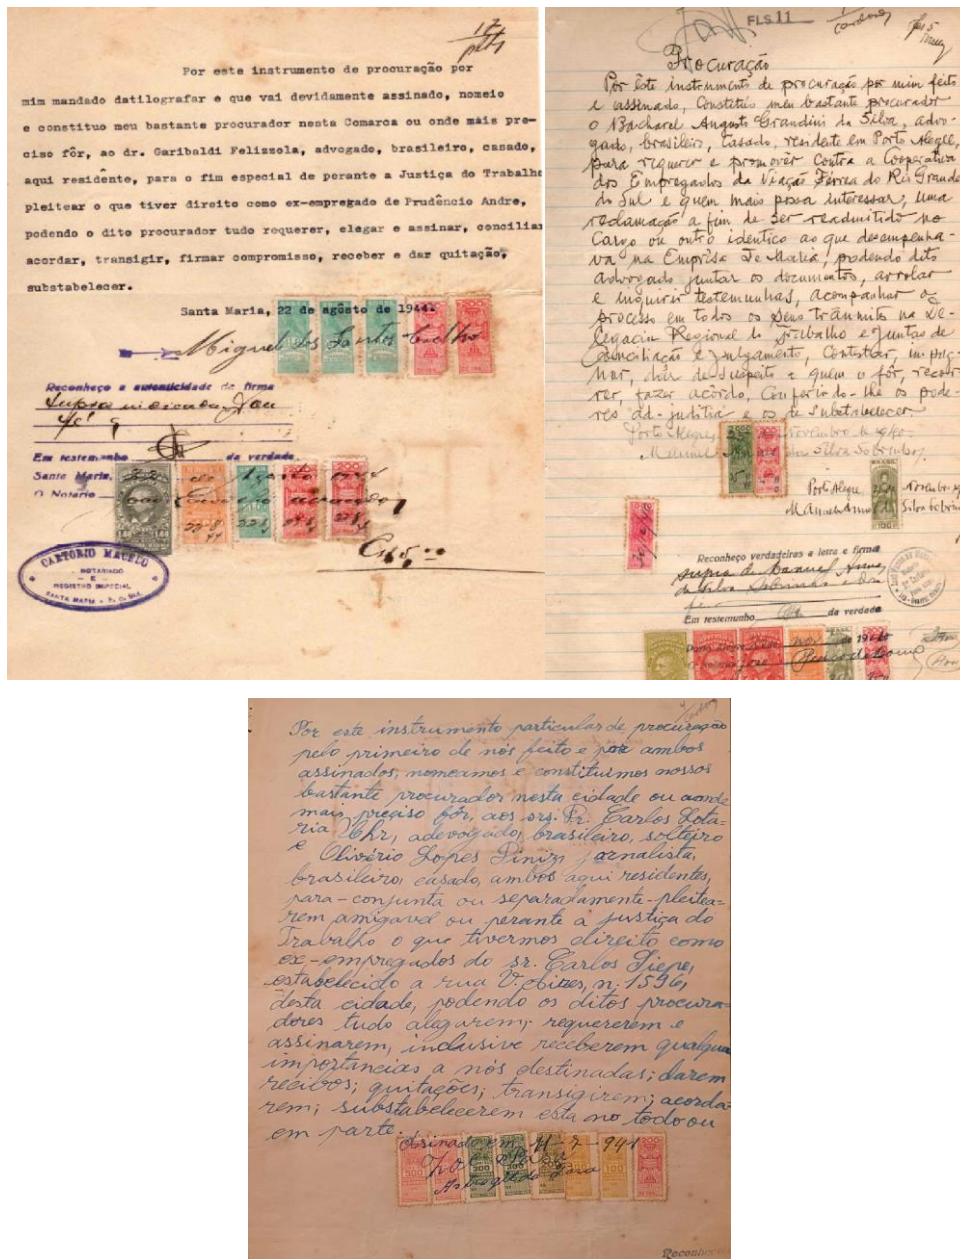 Por este instrumento de procuração por
mim mandado datilografar e que vai devidamente assinado, nomeio
e constituo meu bastante procurador nesta Comarca ou onde mais pre-
ciso fôr, ao dr. Garibaldi Felizzola, advogado, brasileiro, casado,
aqui residente, para o fim especial de perante a Justiça do Trabalho
pleitear o que tiver direito como ex-empregado de Prudêncio Andre,
podendo o dito procurador tudo requerer, alegar e assinar, conciliar
acordar, transigir, firmar compromisso, receber e dar quitação,
substabelecer.
Santa Maria, 22 de agôsto de 1944.
Miguel dos Santos Coelho
Reconheço a autenticidade da firma
supra indicada, dou
fé
Em testemunho da verdade.
Santa Maria,
O Notario
CARTORIO MACEDO
NOTARIADO
E
REGISTRO ESPECIAL
SANTA MARIA - R. G. SUL
FLS 11
Procuração
Por êste instrumento de procuração por mim feito
e assinado, Constituo meu bastante procurador
o Bacharel Augusto Grandini da Silva, advo-
gado, brasileiro, Casado, residente em Porto Alegre,
para requerer e promover Contra a Cooperativa
dos Empregados da Viação Férrea do Rio Grande
do Sul e quem mais possa interessar, uma
reclamação a fim de ser readmitido no
Cargo ou outro identico ao que desempenha-
va na Empresa Je Maria, podendo dito
advogado juntar os documentos, arrolar
e inquirir testemunhas, acompanhar o
processo em todos os seus trâmites na De-
legacia Regional do Trabalho e Juntas de
Conciliação e Julgamento, Contestar, impug-
nar, dar de suspeito a quem o fôr, recor-
rer, fazer acôrdo, Conferindo-lhe os pode-
res ad-juditia e os de Substabelecer
Porto Alegre Novembro de 1940.
Manuel da Silva Sobrinho
Porto Alegre Novembro
Manuel Silva Sobrinho
Reconheço verdadeiras a letra e firma
supra de Manuel
da Silva Sobrinho e dou
fé
Em testemunho da verdade
Porto Alegre, de 1940
O Notario José
Por este instrumento particular de procuração
pelo primeiro de nós feito e por ambos
assinados, nomeamos e constituimos nossos
bastante procurador nesta cidade ou aonde
mais preciso fôr, aos srs. Dr. Carlos Lota-
rio Uhr, adevogado, brasileiro, solteiro
e Olivério Lopes Diniz, jornalista,
brasileiro, casado, ambos aqui residentes,
para-conjunta ou separadamente-pleitea-
rem amigavel ou perante a justiça do
Trabalho o que tivermos direito como
ex-empregados do sr. Carlos Siepe,
estabelecido a rua V. Aires, n. 1596,
desta cidade, podendo os ditos procura-
dores tudo alegarem; requererem e
assinarem, inclusive receberem qualquer
importancias a nós destinadas; darem
recibos; quitações; transigirem; acorda-
rem; substabelecerem esta no todo ou
em parte.
Assinado em 11-7-941
Reconheço